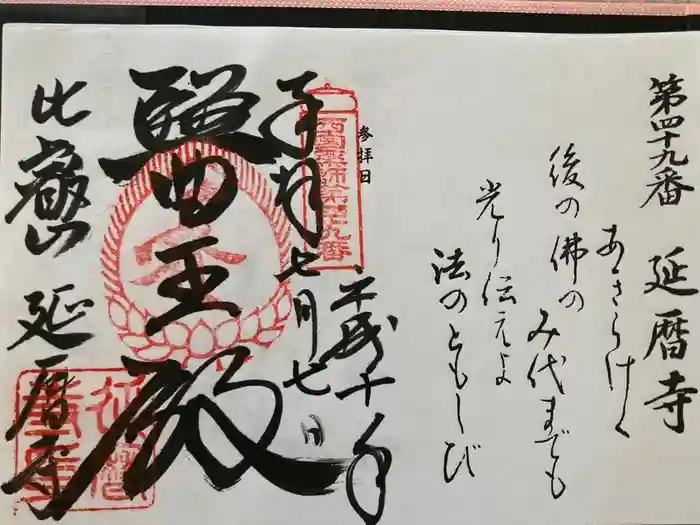 第四十九番 延暦寺
あきらけく
後の佛の
み代までも
光り伝えよ
法のともしび
参拝日
平成十年
七月七日
西国薬師第四十九番
奉拝
醫王殿
比叡山 延暦寺